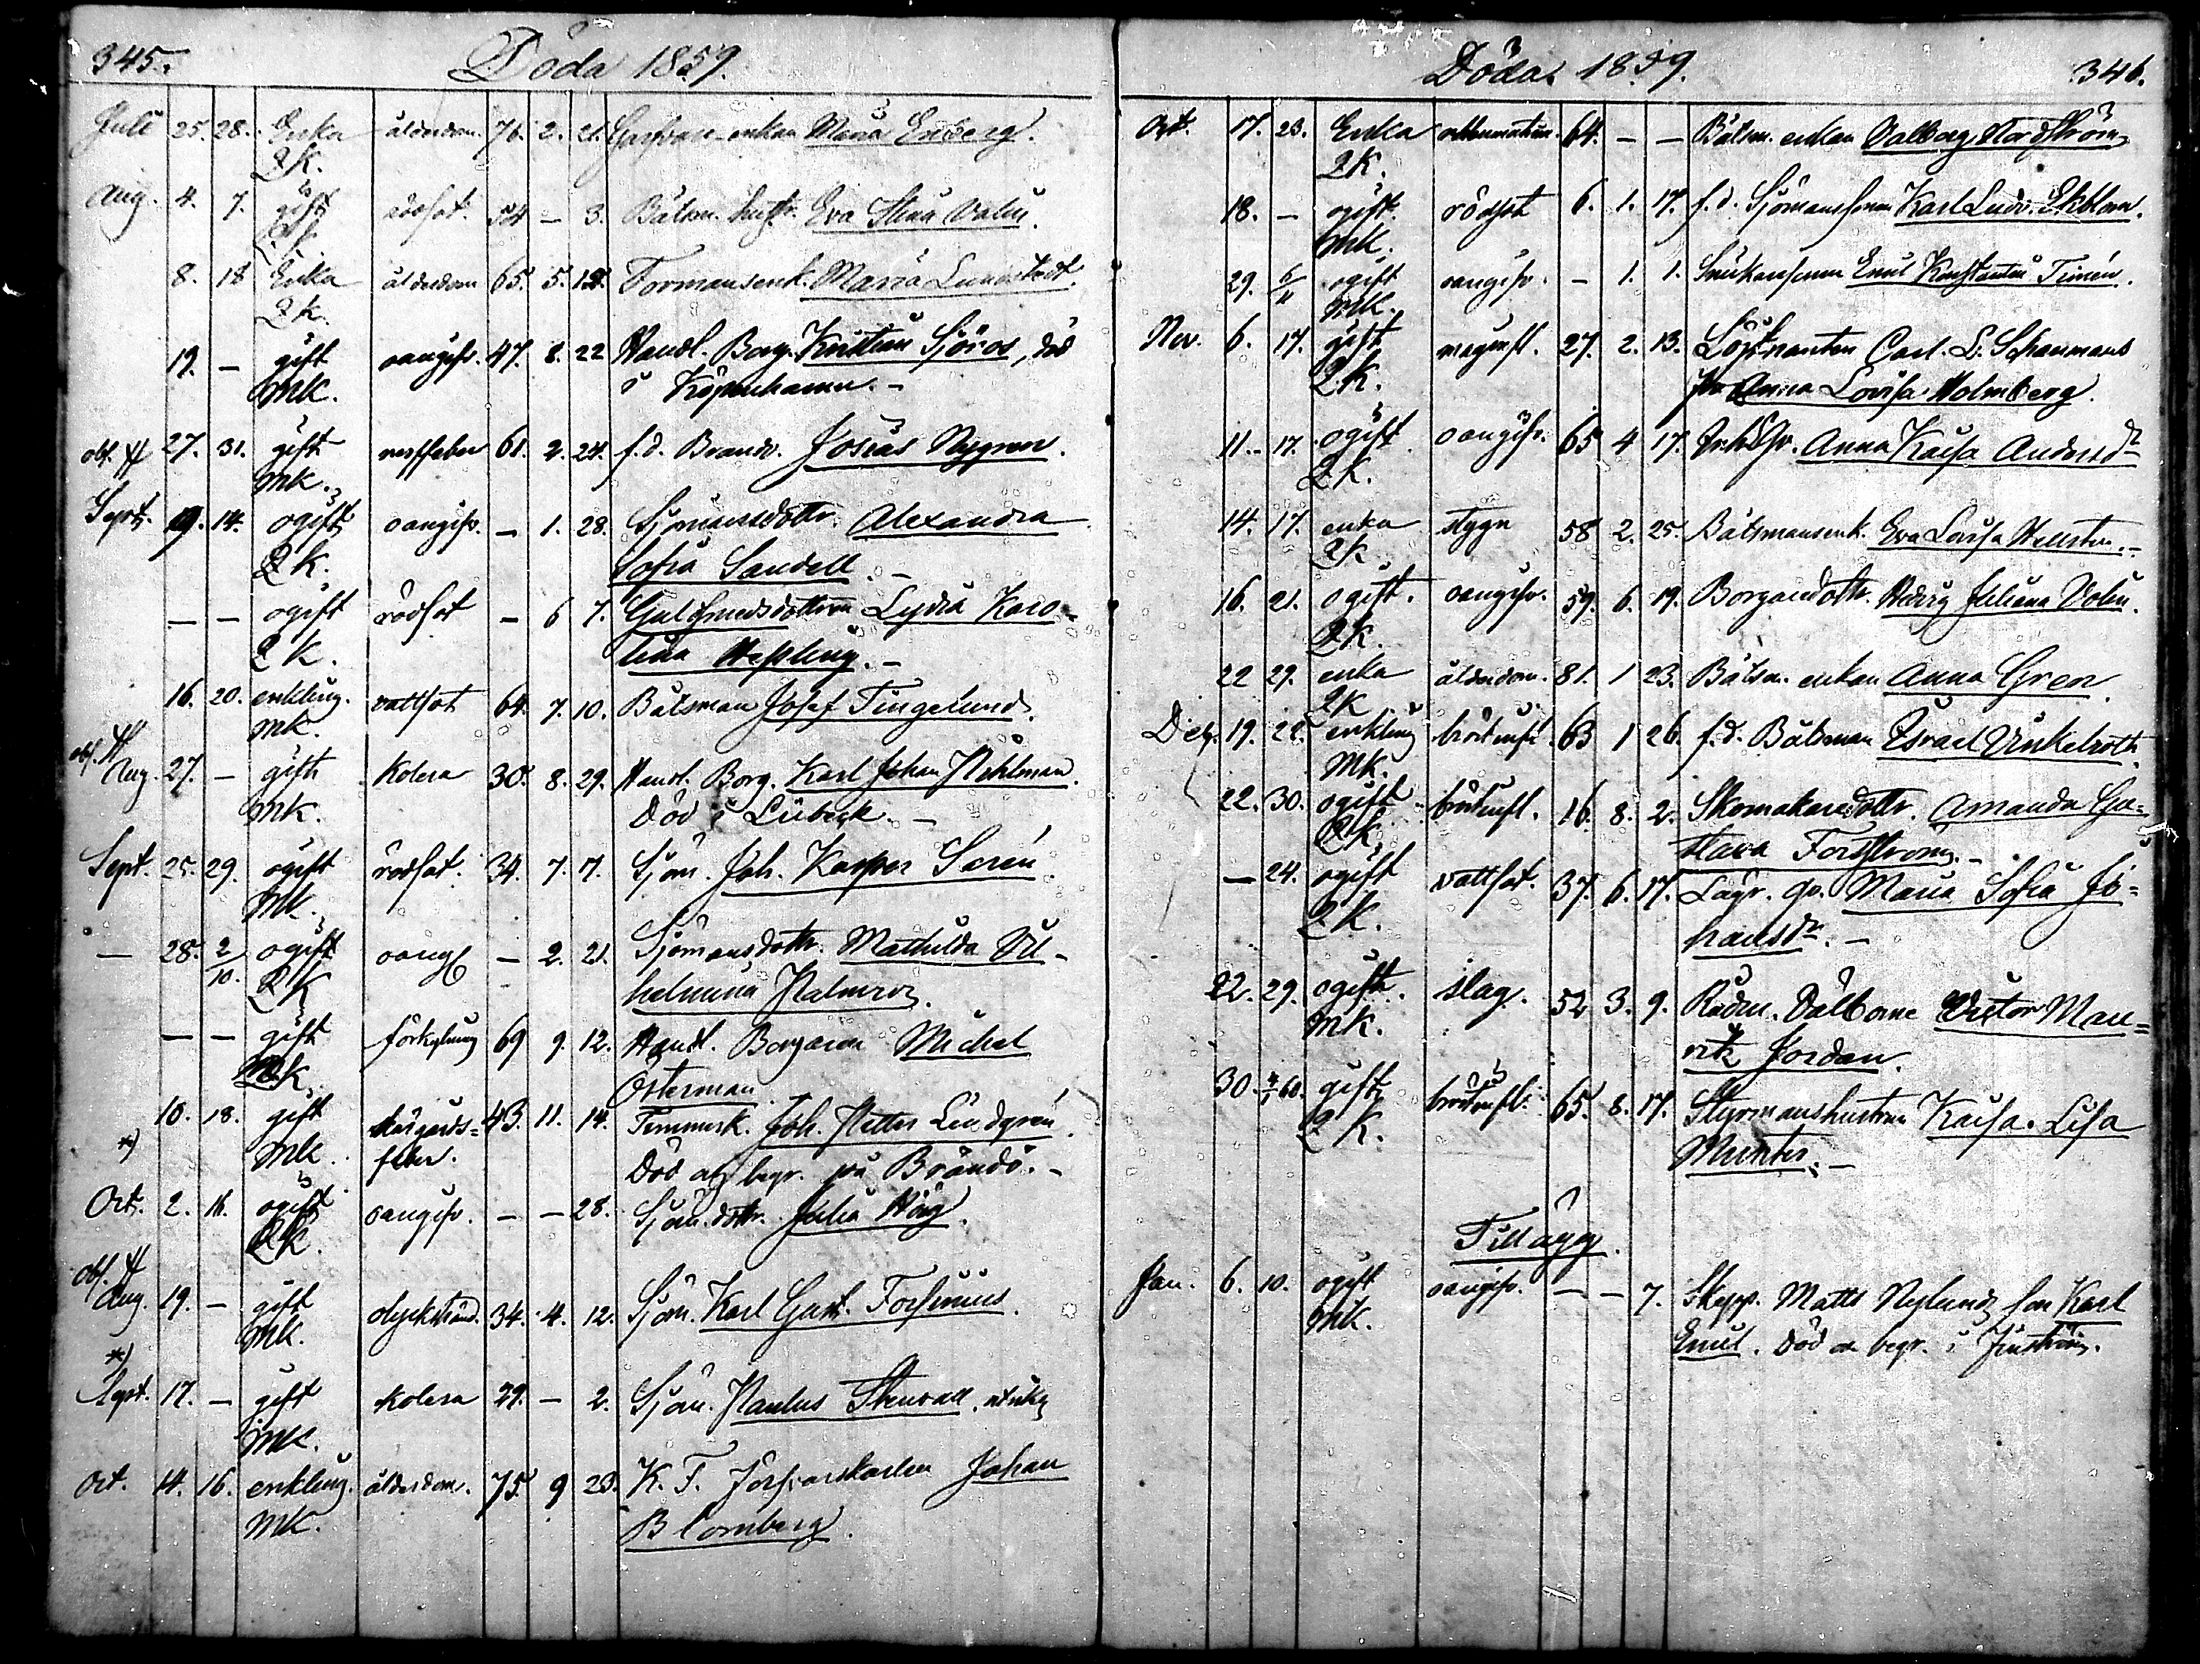 345.
Döda 1859.
Juli 25. 28. Enka ålderdom. 76. 2. 21. enkan Maria Enberg.
QK.
Aug. 4. 7. gift rödsot. 54 – 3. Båtsm. hustr. Eva Stina Valin.
QK.
8. 18 Enka ålderdom 65. 5. 12. Formansenk. Maria Lundstedt.
QK.
19. – gift oangifv. 47. 8. 22 Handl. Borg. Kristian Sjöros, död
MK. i Köpenhamn. –
obs. # 27. 31. gift nerffeber 61. 2. 24. f.d. Brandv. Josias Nygren.
MK.
Sept. 9. 14. ogift oangifv. – 1. 28. Sjömansdottr. Alexandra
QK. Sofia Sandell. –
– – ogift rödsot – 6 7. Lydia Karo-
QK. lina Hessling. –
16. 20. enkling. vattsot 64. 7. 10. Båtsman Josef Tingelund.
MK.
obs. #
Aug. 27. – gift Kolera 30. 8. 29. Handl. Borg. Karl Johan Pihlman.
MK. Död i Lübeck. –
Sept. 25. 29. ogift rödsot. 34. 7. 7. Sjöm. Joh. Kasper Serén.
MK.
– 28. 2/10. ogift oangf – 2. 21. Sjömansdottr. Mathilda Vil-
QK helmina Palmroz.
– – gift förkylning 69 9. 12. Handl. Borgaren Michel
MK. Österman.
10. 18. gift skärgårds- 43. 11. 14. Timmerk. Joh. Petter Lindgren.
*) MK. feber. Död och begr. på Brändö. –
Oct. 2. 16. ogift oangifv. – – 28. Sjöm. dottr. Julia Höig.
QK.
obs. #
Aug. 19. – gift olyckshänd. 34. 4. 12. Sjöm. Karl Gust. Forsenius.
MK.
*)
Sept. 17. – gift kolera 29. – 2. Sjöm. Paulus Stenvall, utrikes
MK.
Oct. 14. 16. enkling. ålderdom. 75. 9 23. K. T. Johan
MK. Blomberg.

Döda 1859. 346.
Oct. 17. 23. Enka 64. – – Båtsm. enkan Valborg Nordström
QK.
18. – ogift. rödsot 6. 1. 17. f.d. Sjömanssonen Karl Ludv. Ekblom.
MK.
29. 6/11 ogift oangifv. – 1. 1. Snickarsonen Emil Konstantin Timén.
MK.
Nov. 6. 17. gift magenfl. 27. 2. 13. Löjtnanten Carl. L. Schaumans
QK. fru Anna Lovisa Holmberg.
11. 17. ogift oangifv. 65 4 17. Anna Kaisa Andersdr
QK.
14. 17. enka stygn 58 2. 25. Båtsmansenk. Eva Lovisa Hellsten. –
QK
16. 21. ogift. oangifv. 59. 6. 19. Borgaredottr. Hedvig Juliana Volin.
QK.
22 27. enka ålderdom. 81. 1 23. Båtsm. enkan Anna Gren.
QK
Dec. 19. 22. enkling bröstinfl. 63 1 26. f.d. Båtsman Israel Vinkelroth.
MK.
22. 30. ogift bröstinfl. 16. 8. 2. Skomakaredottr. Amanda Gu-
QK. stava Forsström. –
– 24. ogift vattsot. 37. 6. 17. qv. Maria Sofia Jo-
QK. hansdr. –
22. 29. ogift. slag. 52 3. 9. Rådm. Välborne Victor Mau-
MK. ritz Jordan.
30. 4/1 60. gift bröstinfl. 65. 8. 17. Styrmanshustrun Kaisa. Lisa
QK. Munter. –
Tillägg.
Jan. 6. 10. ogift oangifv. – – 7. Skepp. Matts Nylunds son Karl
MK. Emil. Död o. begr. i Finström.